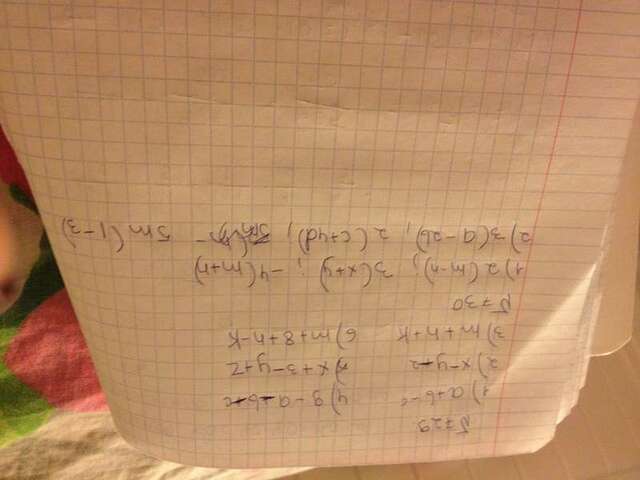 №729
1) a+b-c 4) 9-a-b+c
2) x-y-z 5) x+3-y+z
3) m+n+k 6) m+8+n-k
№730
1) 2(m-n); 3(x+y); -4(m+n)
2) 3(a-2b), 2(c+4d); 5m(1-3)